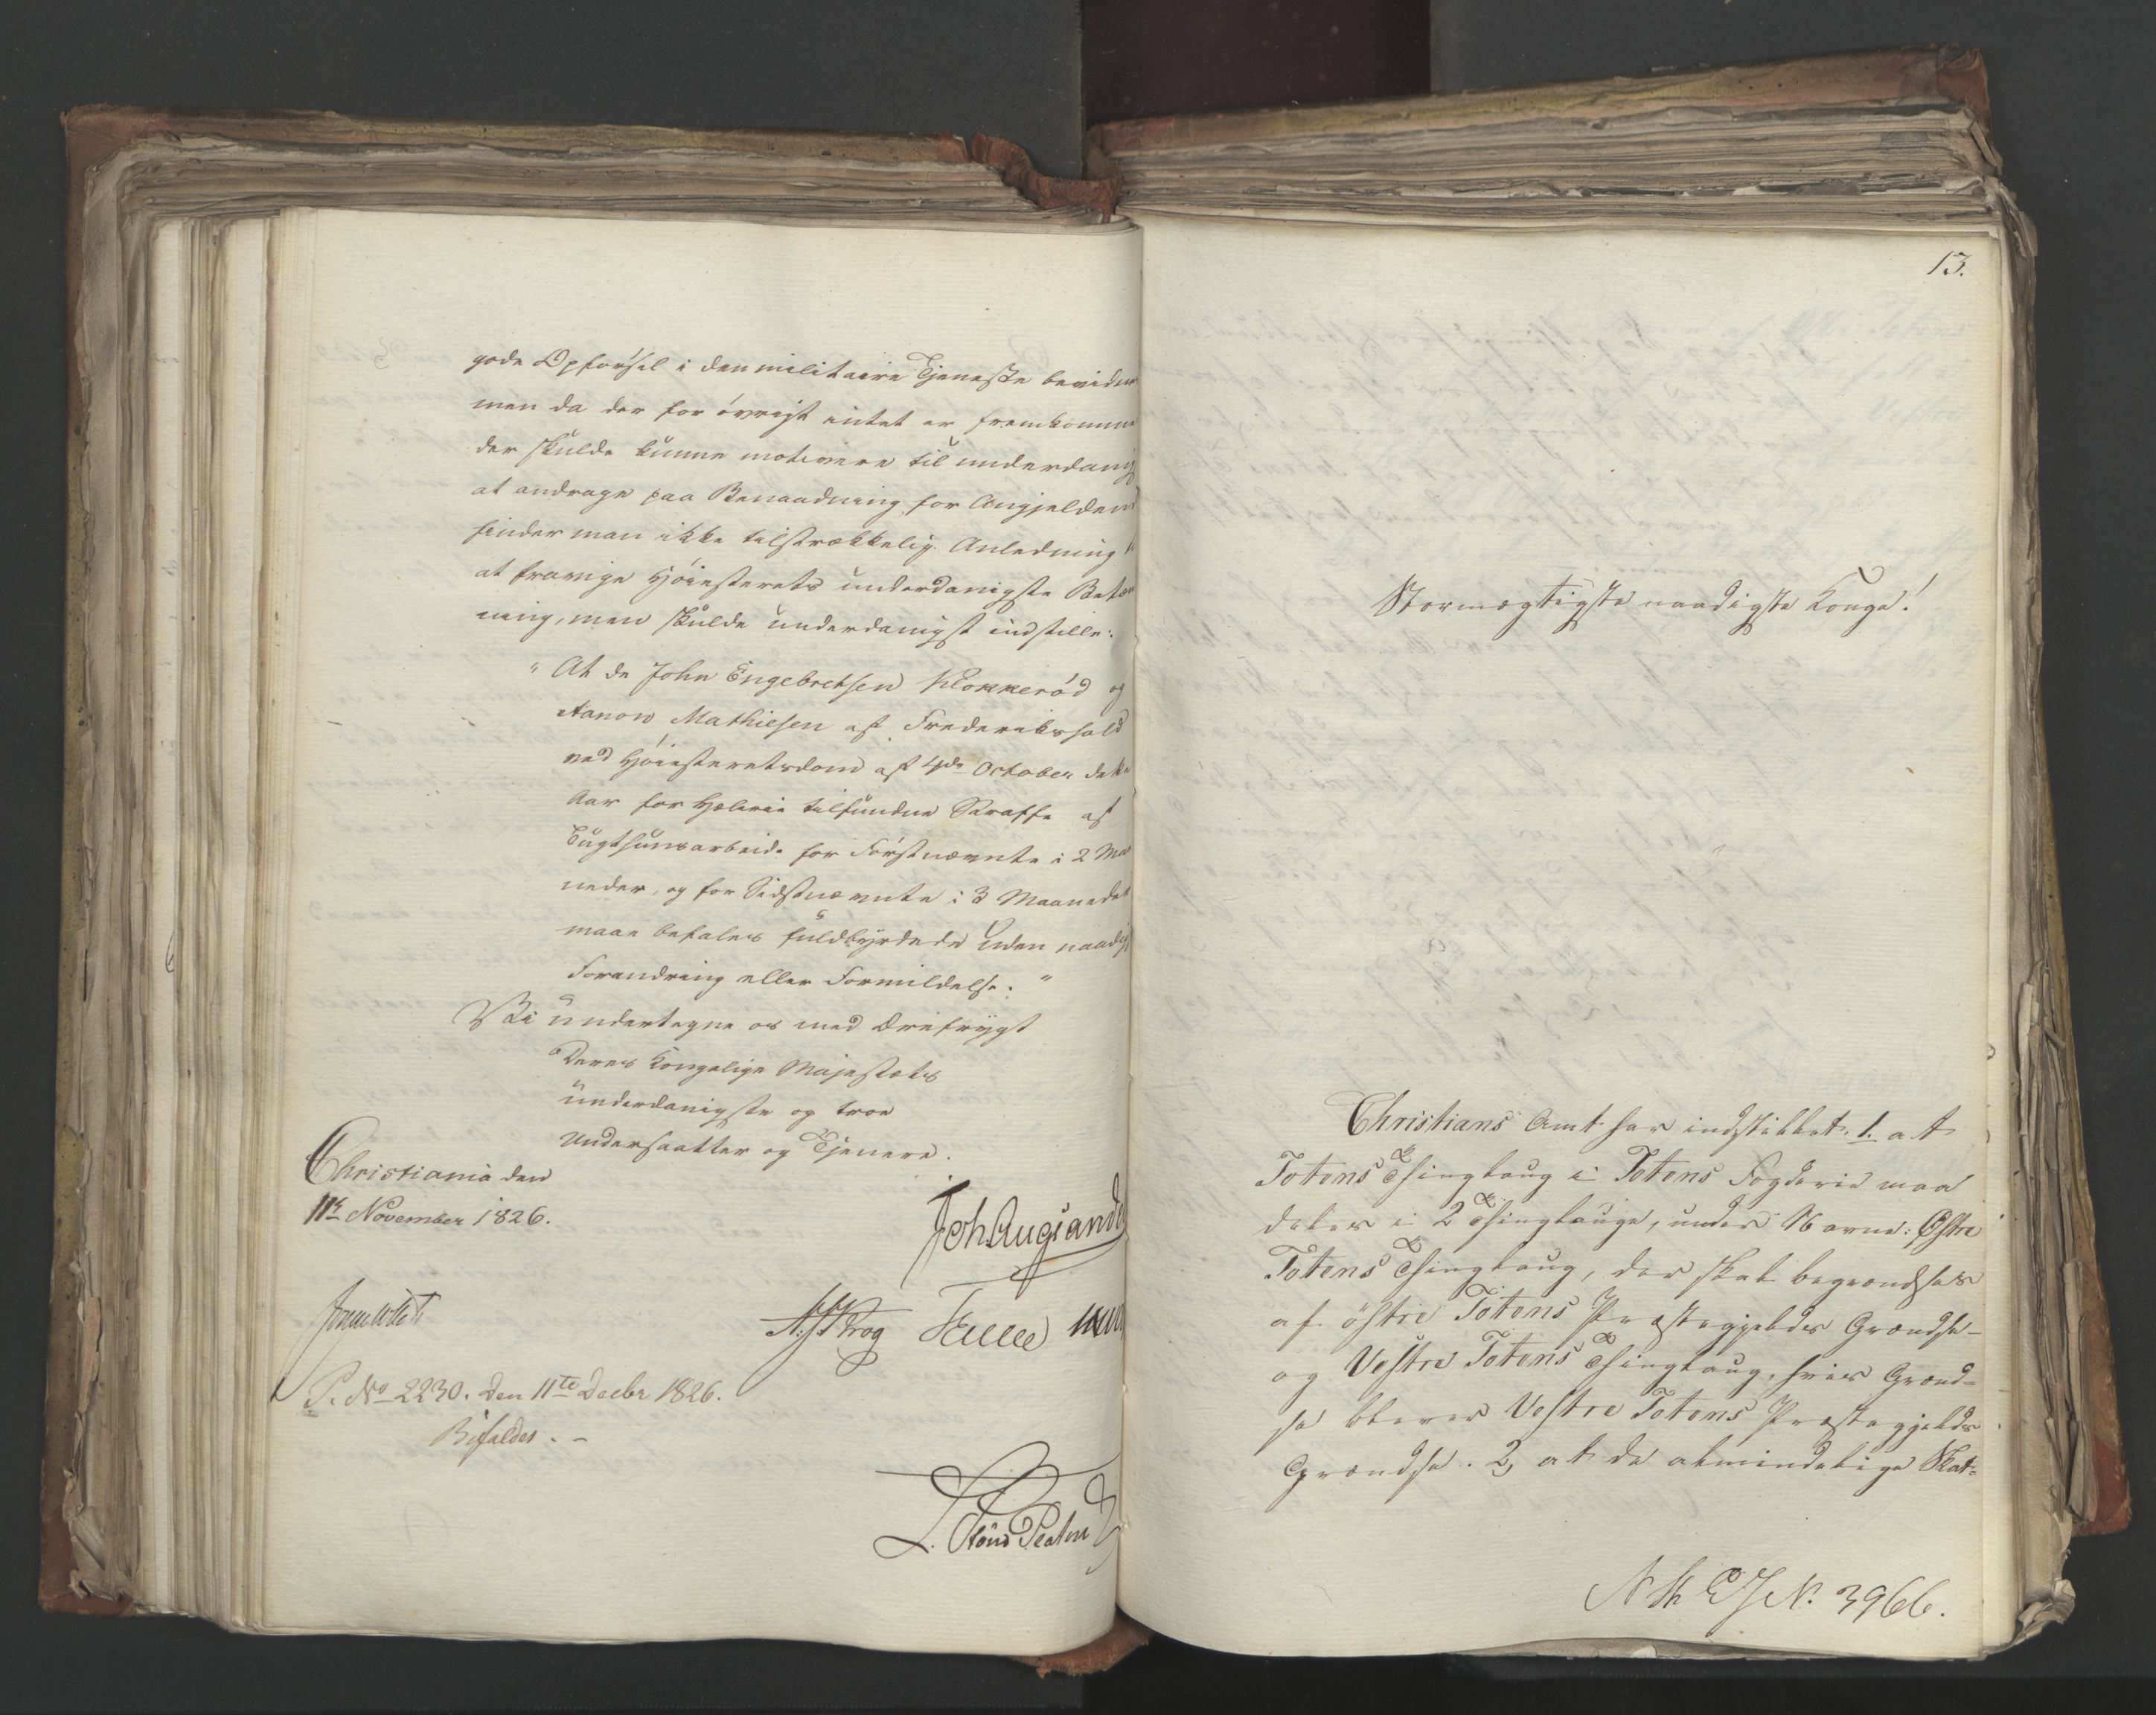 gode Opførsel i den militaire Tjeneste bevidn
men da der for øvrigt intet er fremkomme
der skulde kunne motivere til underdanig
at andrage paa Benaadning for Angjelden
finder man ikke tilstrækkelig Anledning
at fravige Høiesterets underdanigste Betæn
ning, men skulde underdanigst indstille:
" At de John Engebretsen Klokkerød og
Aanon Mathiesen af Frederikshald
ved Høiesteretsdom af 4de October dette
Aar for Hæleri tilfundne Straffe af
Tugthuusarbeide for Førstnævnte i 2 Maa
neder, og for Sidstnævnte i 3 Maaneder
maae befales fuldbyrdede uden naadigst
Forandring eller Formildelse. "
Vi undertegne os med Ærefrygt
Deres Kongelige Majestæts
underdanigste og troe
Undersaatter og Tjenere.
Christiania den
11te November 1826.
Joh. Aug. Sande
Jonas Collett
Krog
P. No 2230. den 11te Decbr 1826.
Bifaldes. -
13.
Stormægtigste naadigste Konge!
Christians Amt har indstillet: 1. at
Totens Thinglaug i Totens Fogderie maa
deles i 2 Thinglauge, under Navne: Østre
Totens Thinglaug, der skal begrændses
af østre Totens Præstegjelds Grændse-
og Vestre Totens Thinglaug, hvis Grænd=
se bliver Vestre Totens Præstegjelds
Grændse. 2, at de almindelige Skat=
N. 3966.